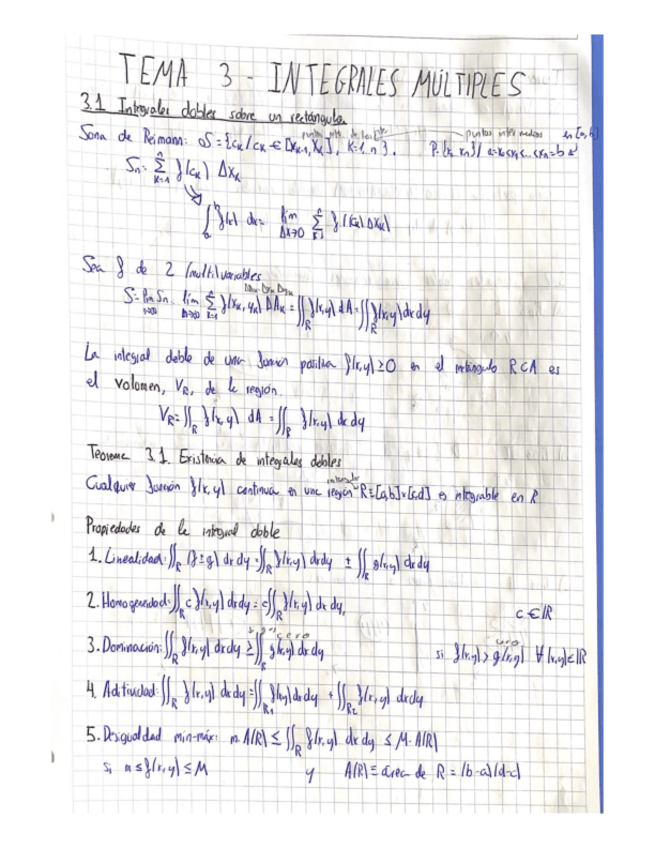 TEMA 3 - INTEGRALES MÚLTIPLES
3.1 Integrales dobles sobre un rectángulo.
puntos intermedios en [a,b]
Suma de Reimann: S = {c_k / c_k ∈ [x_{k-1}, x_k], k=1, n}.
S_n = ∑_{k=1}^{n} f(c_k) Δx_k
∫_a^b f(x) dx = lim_{Δx→0} ∑_{k=1}^{n} f(c_k) Δx_k
Sea f de 2 (multi)variables
S = lim_{n→∞} S_n = lim ∑_{k=1}^{n} f(x_k, y_k) ΔA_k = ∬_R f(x,y) dA = ∬_R f(x,y) dx dy
La integral doble de una función positiva f(x,y) ≥ 0 en el rectángulo R⊂A es
el volumen, V_R, de la región.
V_R = ∬_R f(x,y) dA = ∬_R f(x,y) dx dy
Teorema 3.1. Existencia de integrales dobles
Cualquier función f(x,y) continua en una región R=[a,b]x[c,d] es integrable en R
Propiedades de la integral doble
1. Linealidad: ∬_R (f ± g) dx dy = ∬_R f(x,y) dx dy ± ∬_R g(x,y) dx dy
2. Homogeneidad: ∬_R c f(x,y) dx dy = c ∬_R f(x,y) dx dy, c ∈ ℝ
3. Dominación: ∬_R f(x,y) dx dy ≥ ∬_R g(x,y) dx dy si f(x,y) > g(x,y) ∀(x,y)∈ℝ
4. Aditividad: ∬_R f(x,y) dx dy = ∬_{R1} f(x,y) dx dy + ∬_{R2} f(x,y) dx dy
5. Desigualdad min-máx: m·A(R) ≤ ∬_R f(x,y) dx dy ≤ M·A(R)
si m ≤ f(x,y) ≤ M y A(R) ≡ área de R = (b-a)(d-c)